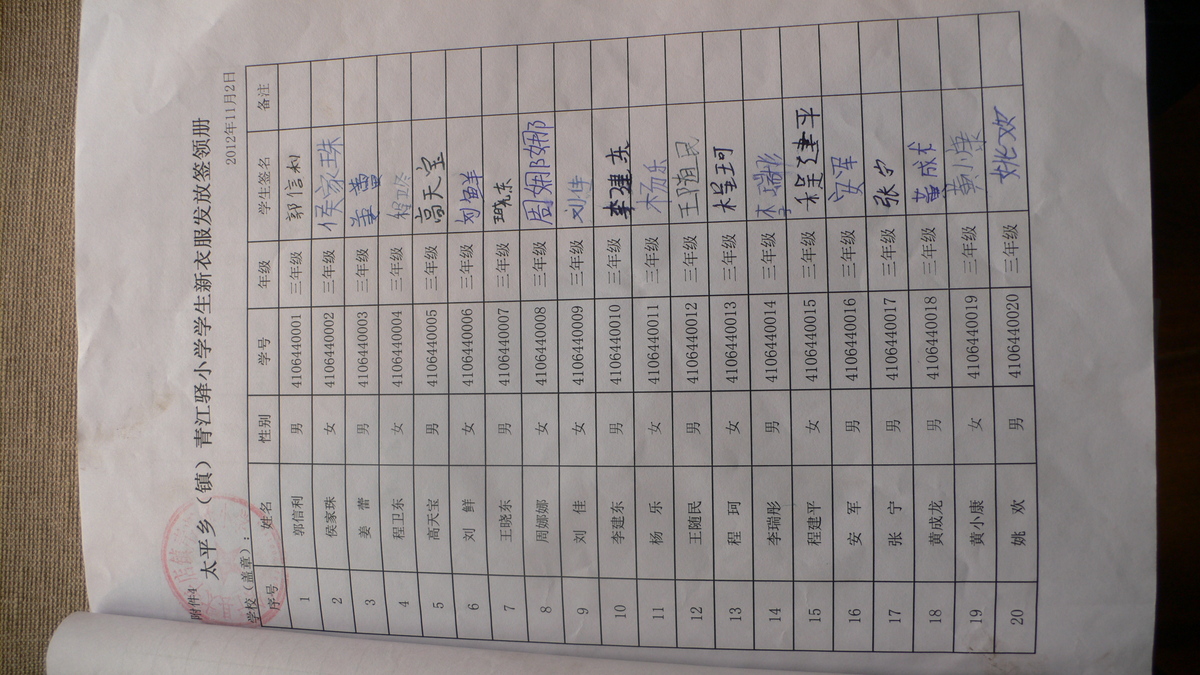 附件4
太平乡（镇）青江驿小学学生新衣服发放签领册
学校（盖章）： 2012年11月2日
序号 姓名 性别 学号 年级 学生签名 备注
1 郭信利 男 4106440001 三年级 郭信利
2 侯家珠 女 4106440002 三年级 侯家珠
3 姜蕾 男 4106440003 三年级 姜蕾
4 程卫东 女 4106440004 三年级 程卫东
5 高天宝 男 4106440005 三年级 高天宝
6 刘鲜 女 4106440006 三年级 刘鲜
7 王晓东 男 4106440007 三年级 王晓东
8 周娜娜 女 4106440008 三年级 周娜娜
9 刘佳 女 4106440009 三年级 刘佳
10 李建东 男 4106440010 三年级 李建东
11 杨乐 女 4106440011 三年级 杨乐
12 王随民 男 4106440012 三年级 王随民
13 程珂 女 4106440013 三年级 程珂
14 李瑞彤 男 4106440014 三年级
15 程建平 女 4106440015 三年级 程建平
16 安军 男 4106440016 三年级 安军
17 张宁 男 4106440017 三年级 张宁
18 黄成龙 男 4106440018 三年级 黄成龙
19 黄小康 女 4106440019 三年级 黄小康
20 姚欢 男 4106440020 三年级 姚欢